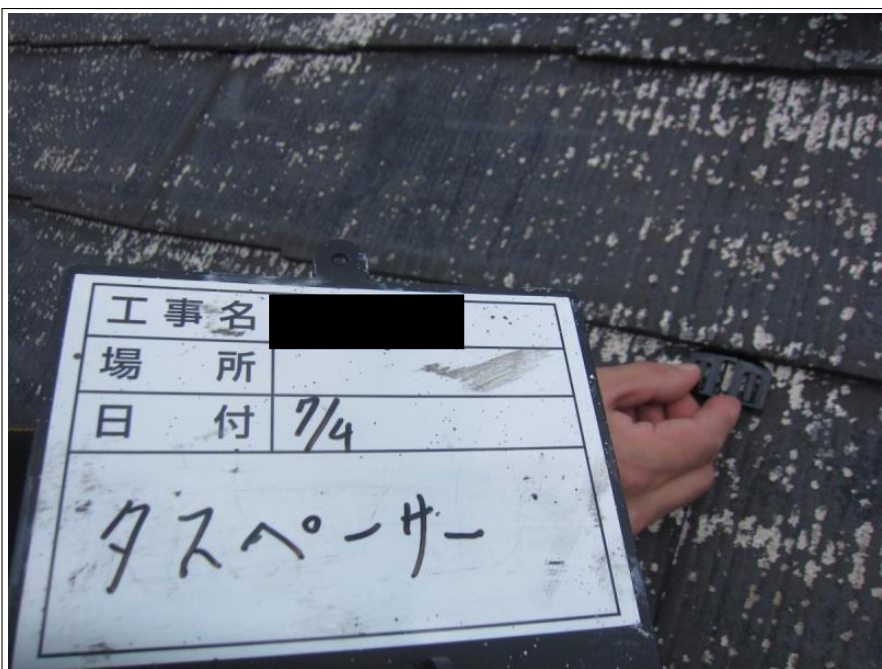 工事名
場所
日付 7/4
タスペーサー